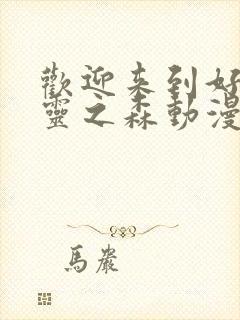 歡迎来到好
靈之森動漫
馬嚴